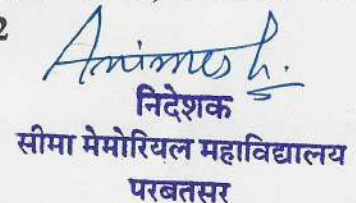 2
Animesh.
निदेशक
सीमा मेमोरियल महाविद्यालय
परबतसर